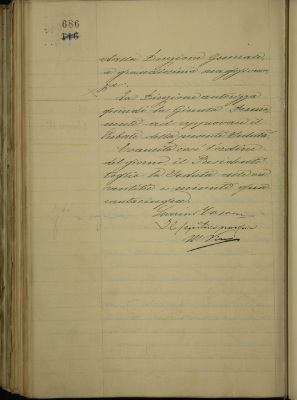 686
116
della Direzione Generale
a grandissima maggioran-
za.
La Direzione autorizza
quindi la Giunta
ad approvare il
Verbale della presente Seduta.
Esaurito così l'ordine
del giorno, il Presidente
toglie la Seduta alle ore
e minuti qua
rantacinque.
Il Segretario